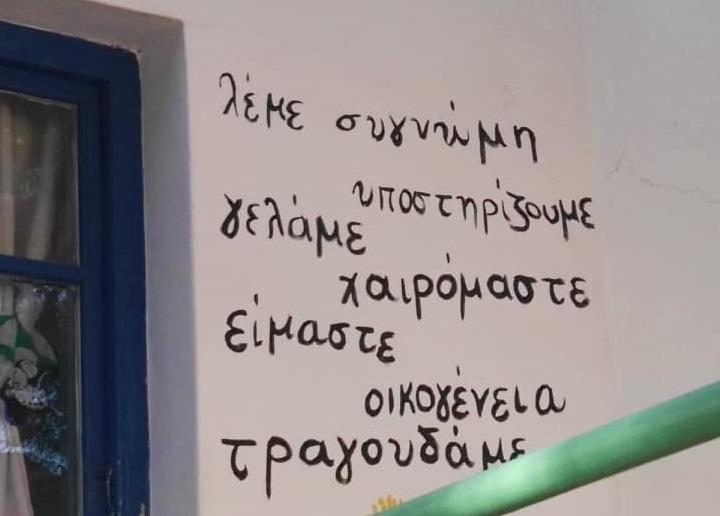 λέμε συγνώμη
υποστηρίζουμε
γελάμε
χαιρόμαστε
είμαστε
οικογένεια
τραγουδάμε